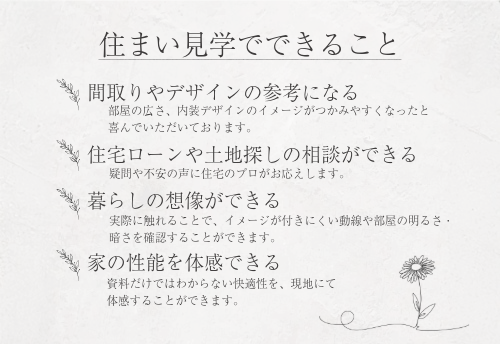 住まい見学でできること
間取りやデザインの参考になる
部屋の広さ、内装デザインのイメージがつかみやすくなったと
喜んでいただいております。
住宅ローンや土地探しの相談ができる
疑問や不安の声に住宅のプロがお応えします。
暮らしの想像ができる
実際に触れることで、イメージが付きにくい動線や部屋の明るさ・
暗さを確認することができます。
家の性能を体感できる
資料だけではわからない快適性を、現地にて
体感することができます。